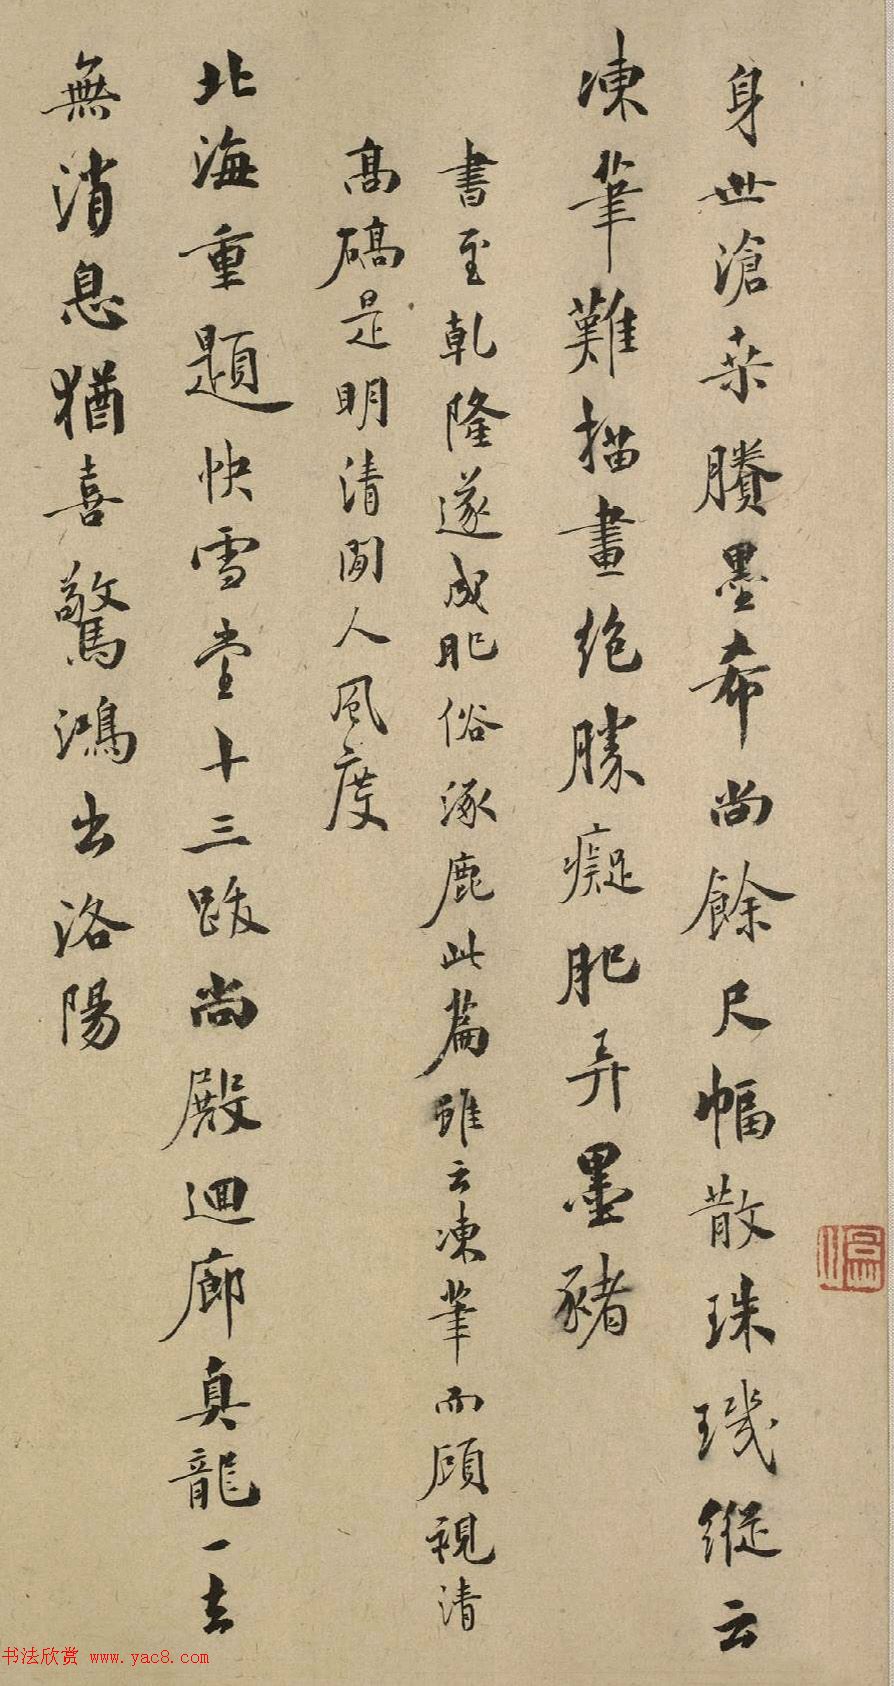 身世滄桑賸墨希尚餘尺幅散珠璣縱云
凍筆難描畫絶勝癡肥弄墨豬
書至乾隆遂成肥俗涿鹿此篇雖云凍筆而顧視清
高礄是明清閒人風度
北海重題快雪堂十三跋尚殿迴廊真龍一去
無消息猶喜驚鴻出洛陽
书法欣赏 www.yac8.com